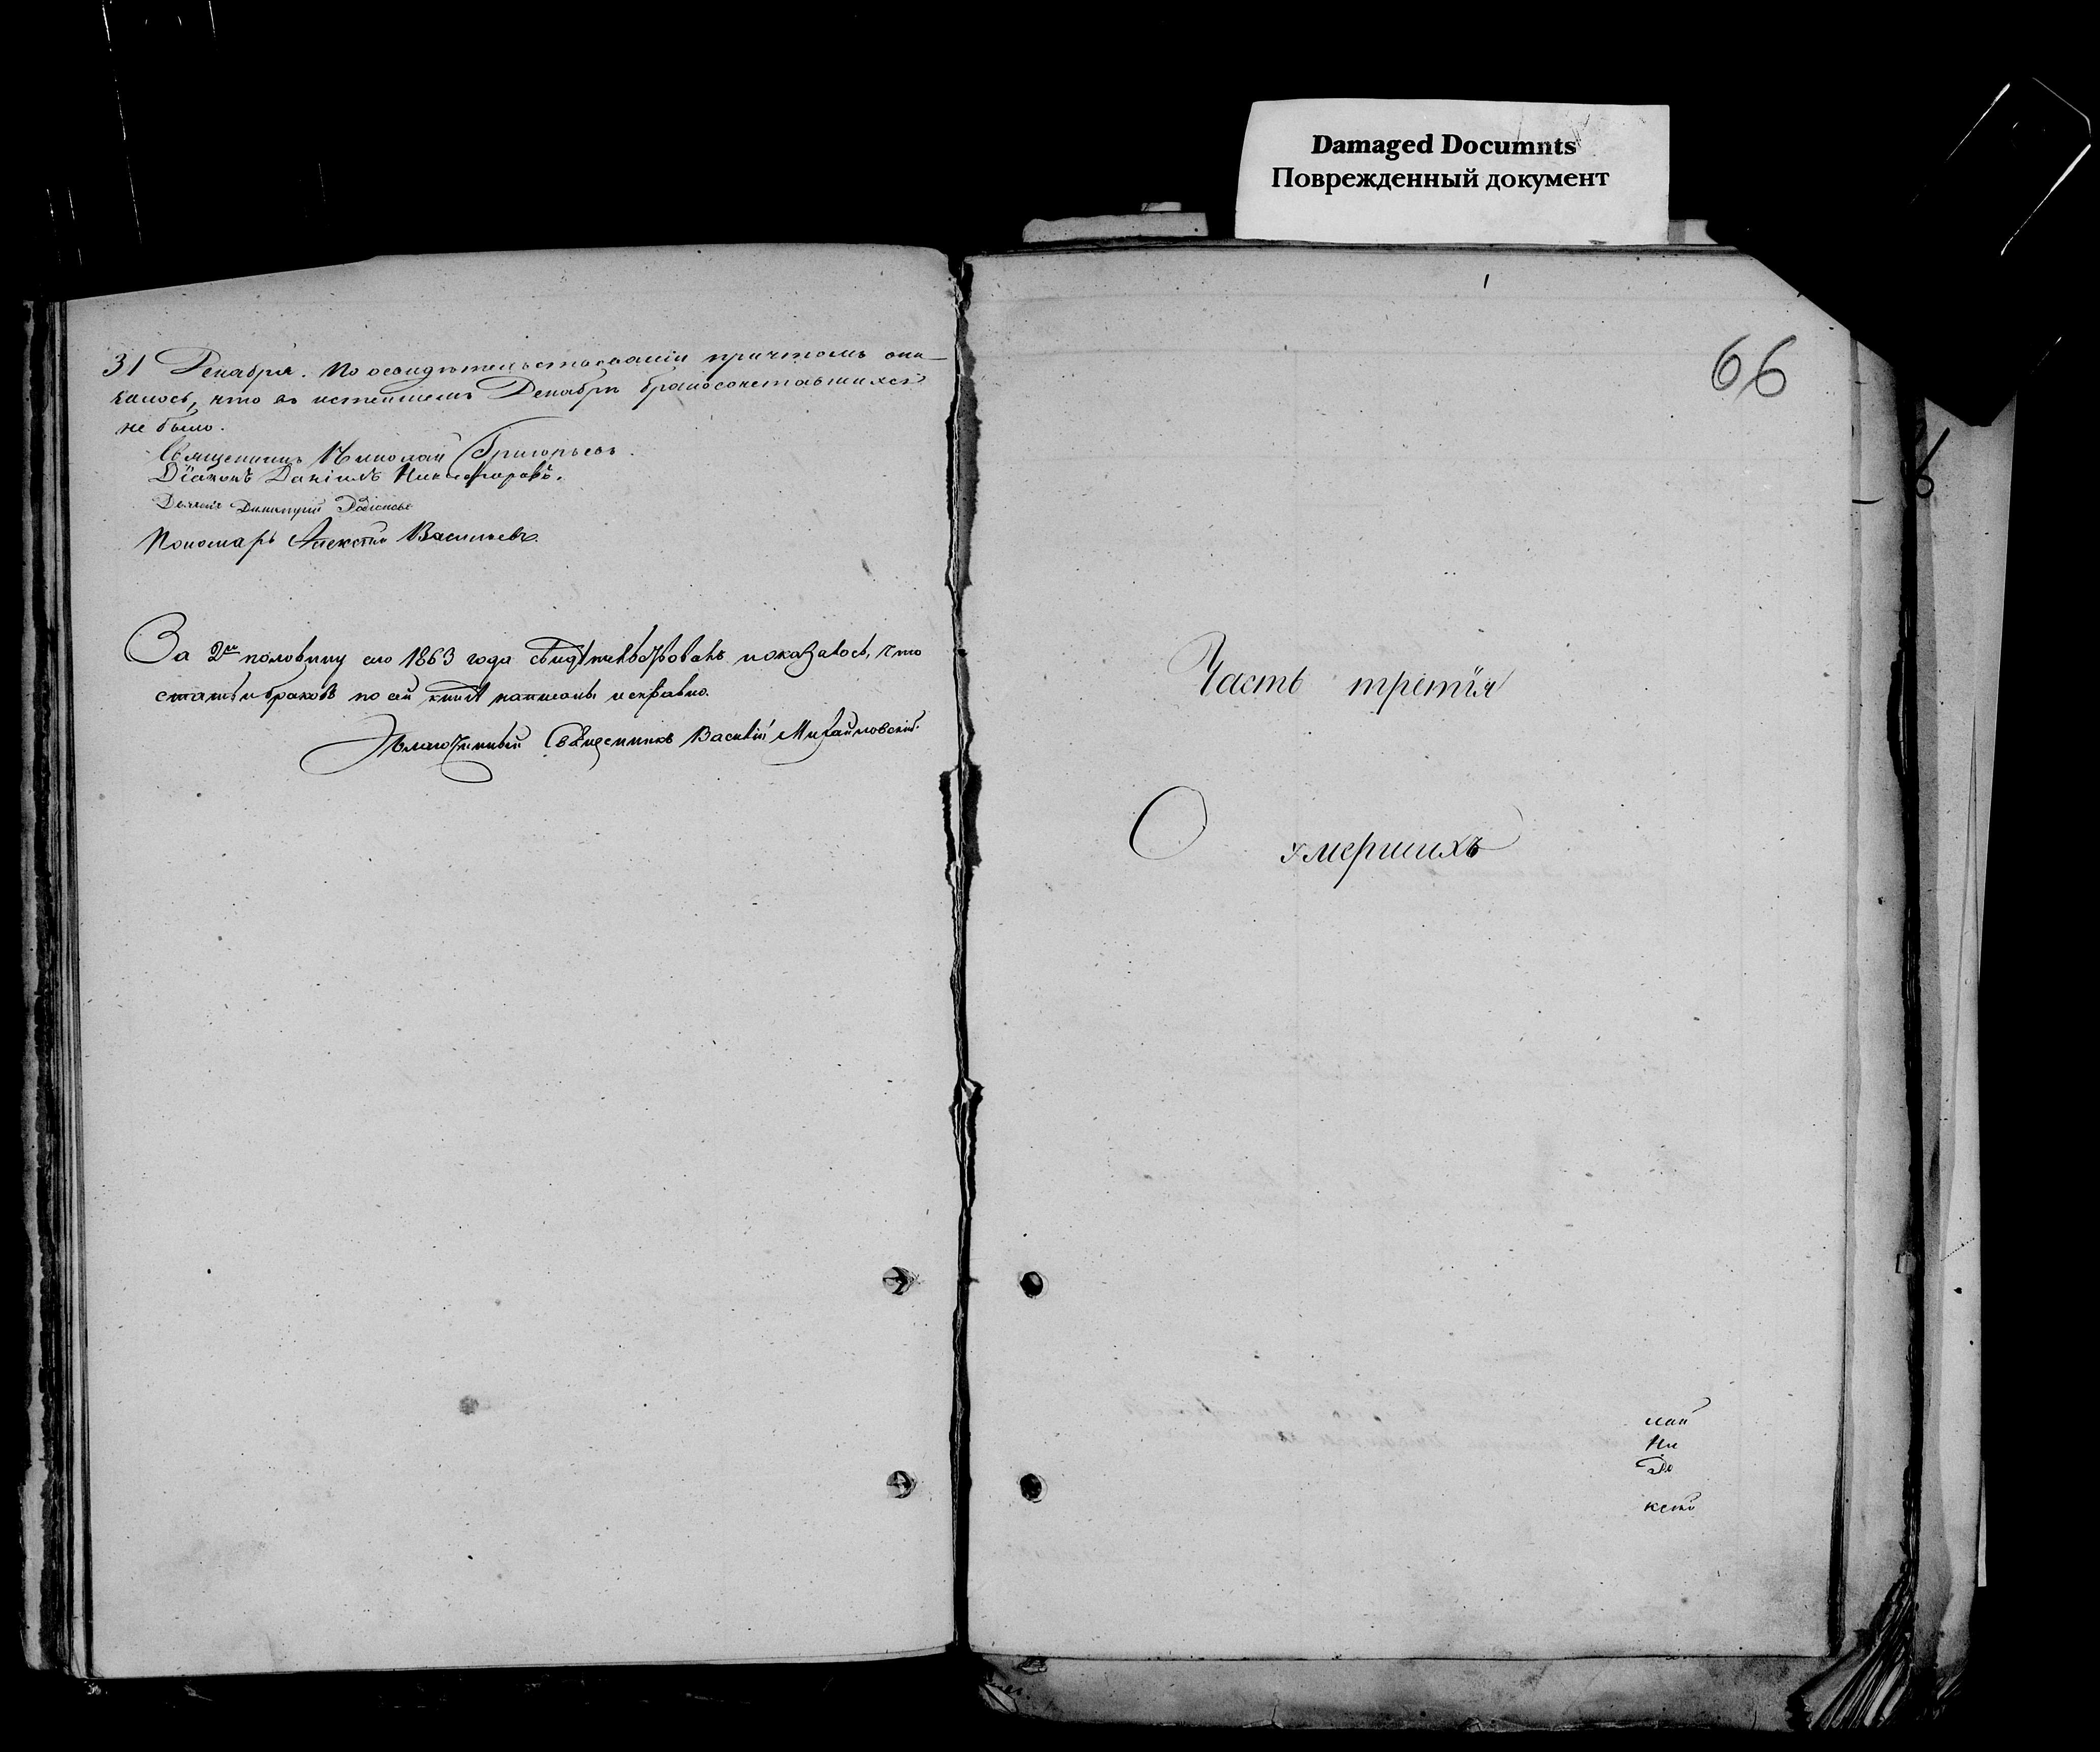 31 Декабря. По освидѣтельствованіи причтомъ ока-
залось, что въ истекшемъ Декабрѣ бракосочетавшихся
не было.
Священникъ Николай Григорьевъ.
Діаконъ Даніилъ Никифоровъ.
Дьячекъ Димитрій
Пономарь Алексѣй Васильевъ.
За 2ю половину сего 1863 года свидѣтельствовалъ и оказалось, что
статьи браковъ по сей книгѣ написаны исправно.
Благочинный Священникъ Василій Михайловскій.
Damaged Documnts
Поврежденный документ
66
Часть третія
О умершихъ
лай
Ни
До
ксѣй